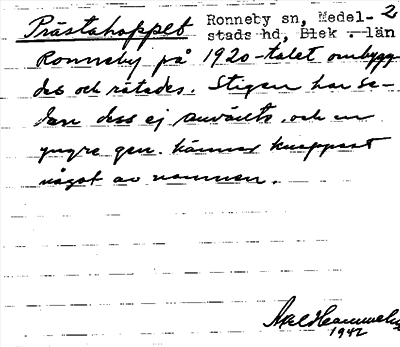 Prästahoppet Ronneby sn, Medel- 2
stads hd, Blek. län
Ronneby på 1920-talet ombygg
des och rätades. Stigen har se-
dan dess ej använts, och en
yngre gen. känner knappast
något av namnen.
1942